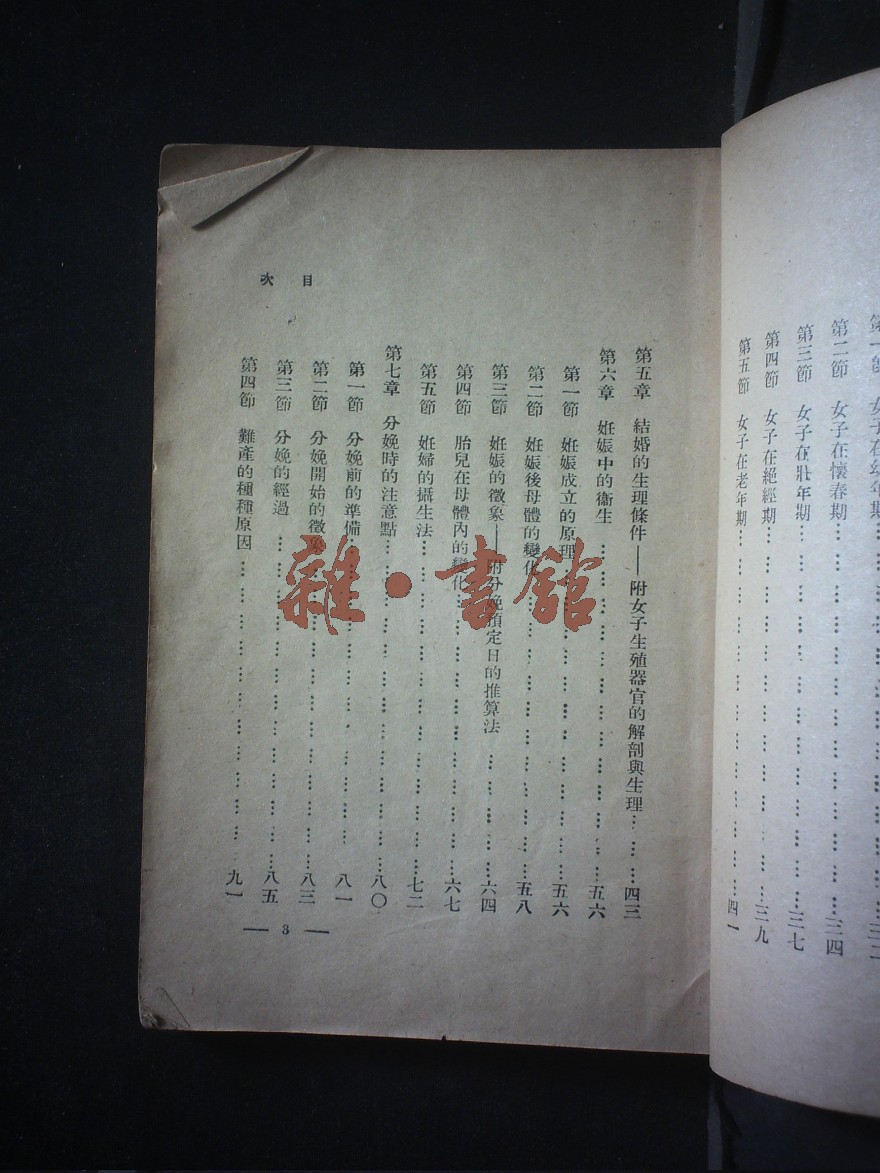 第二節 女子在懷春期
三四
第三節 女子在壯年期
三七
第四節 女子在絕經期
三九
第五節 女子在老年期
四一
目次
第五章 結婚的生理條件——附女子生殖器官的解剖與生理
四三
第六章 妊娠中的衞生
五六
第一節 妊娠成立的原理
五六
第二節 妊娠後母體的變化
五八
第三節 妊娠的徵象——附分娩預定日的推算法
六四
第四節 胎兒在母體內的變化
六七
第五節 妊婦的攝生法
七二
第七章 分娩時的注意點
八〇
第一節 分娩前的準備
八一
第二節 分娩開始的徵象
八三
第三節 分娩的經過
八五
第四節 難產的種種原因
九一
— 3 —
雜·書館